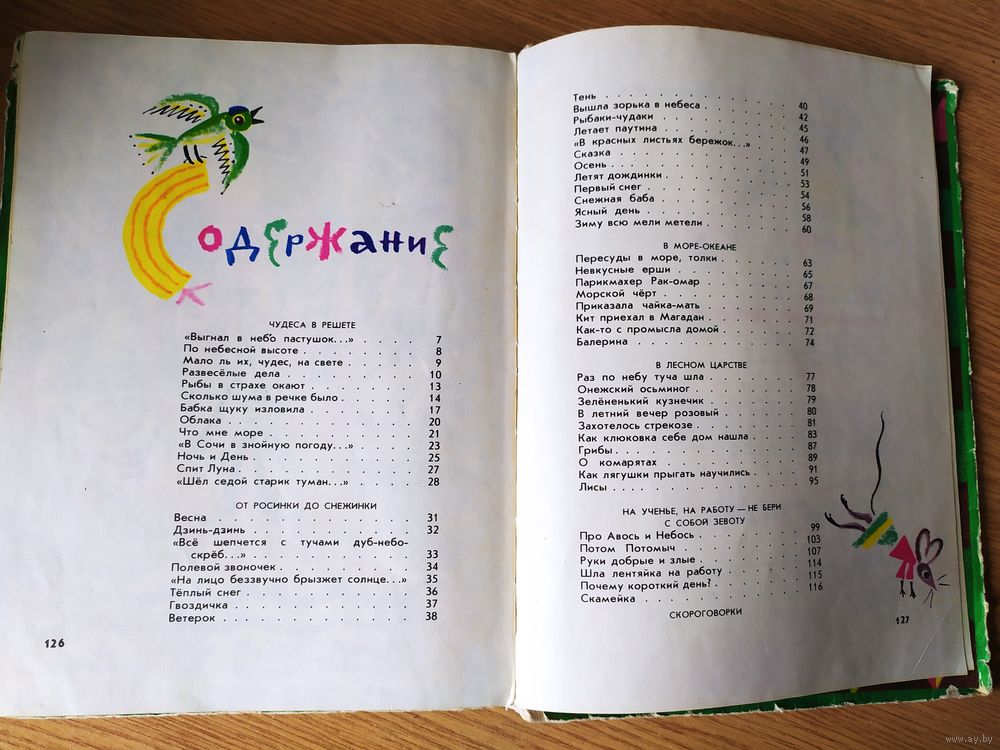 Содержание
ЧУДЕСА В РЕШЕТЕ
«Выгнал в небо пастушок...» . . . . 7
По небесной высоте . . . . 8
Мало ль их, чудес, на свете . . . . 9
Развесёлые дела . . . . 10
Рыбы в страхе окают . . . . 13
Сколько шума в речке было . . . . 14
Бабка щуку изловила . . . . 17
Облака . . . . 20
Что мне море . . . . 21
«В Сочи в знойную погоду...» . . . . 23
Ночь и День . . . . 25
Спит Луна . . . . 27
«Шёл седой старик туман...» . . . . 28
ОТ РОСИНКИ ДО СНЕЖИНКИ
Весна . . . . 31
Дзинь-дзинь . . . . 32
«Всё шепчется с тучами дуб-небо-
скрёб...» . . . . 33
Полевой звоночек . . . . 34
«На лицо беззвучно брызжет солнце...» 35
Тёплый снег . . . . 36
Гвоздичка . . . . 37
Ветерок . . . . 38
126
Тень . . . . 40
Вышла зорька в небеса . . . . 42
Рыбаки-чудаки . . . . 45
Летает паутина . . . . 46
«В красных листьях бережок...» . . . . 47
Сказка . . . . 49
Осень . . . . 51
Летят дождинки . . . . 53
Первый снег . . . . 54
Снежная баба . . . . 56
Ясный день . . . . 58
Зиму всю мели метели . . . . 60
В МОРЕ-ОКЕАНЕ
Пересуды в море, толки . . . . 63
Невкусные ерши . . . . 65
Парикмахер Рак-омар . . . . 67
Морской чёрт . . . . 68
Приказала чайка-мать . . . . 69
Кит приехал в Магадан . . . . 71
Как-то с промысла домой . . . . 72
Балерина . . . . 74
В ЛЕСНОМ ЦАРСТВЕ
Раз по небу туча шла . . . . 77
Онежский осьминог . . . . 78
Зелёненький кузнечик . . . . 79
В летний вечер розовый . . . . 80
Захотелось стрекозе . . . . 81
Как клюковка себе дом нашла . . . . 83
Грибы . . . . 87
О комарятах . . . . 89
Как лягушки прыгать научились . . . . 91
Лисы . . . . 95
НА УЧЕНЬЕ, НА РАБОТУ — НЕ БЕРИ
С СОБОЙ ЗЕВОТУ
Про Авось и Небось . . . . 99
Потом Потомыч . . . . 103
Руки добрые и злые . . . . 107
Шла лентяйка на работу . . . . 114
Почему короткий день? . . . . 115
Скамейка . . . . 116
СКОРОГОВОРКИ
127
www.ay.by